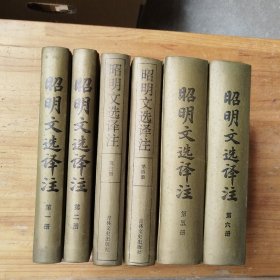 昭明文选译注
第一册
昭明文选译注
第二册
昭明文选译注
第三册
吉林文史出版社
昭明文选译注
第四册
吉林文史出版社
昭明文选译注
第五册
昭明文选译注
第六册